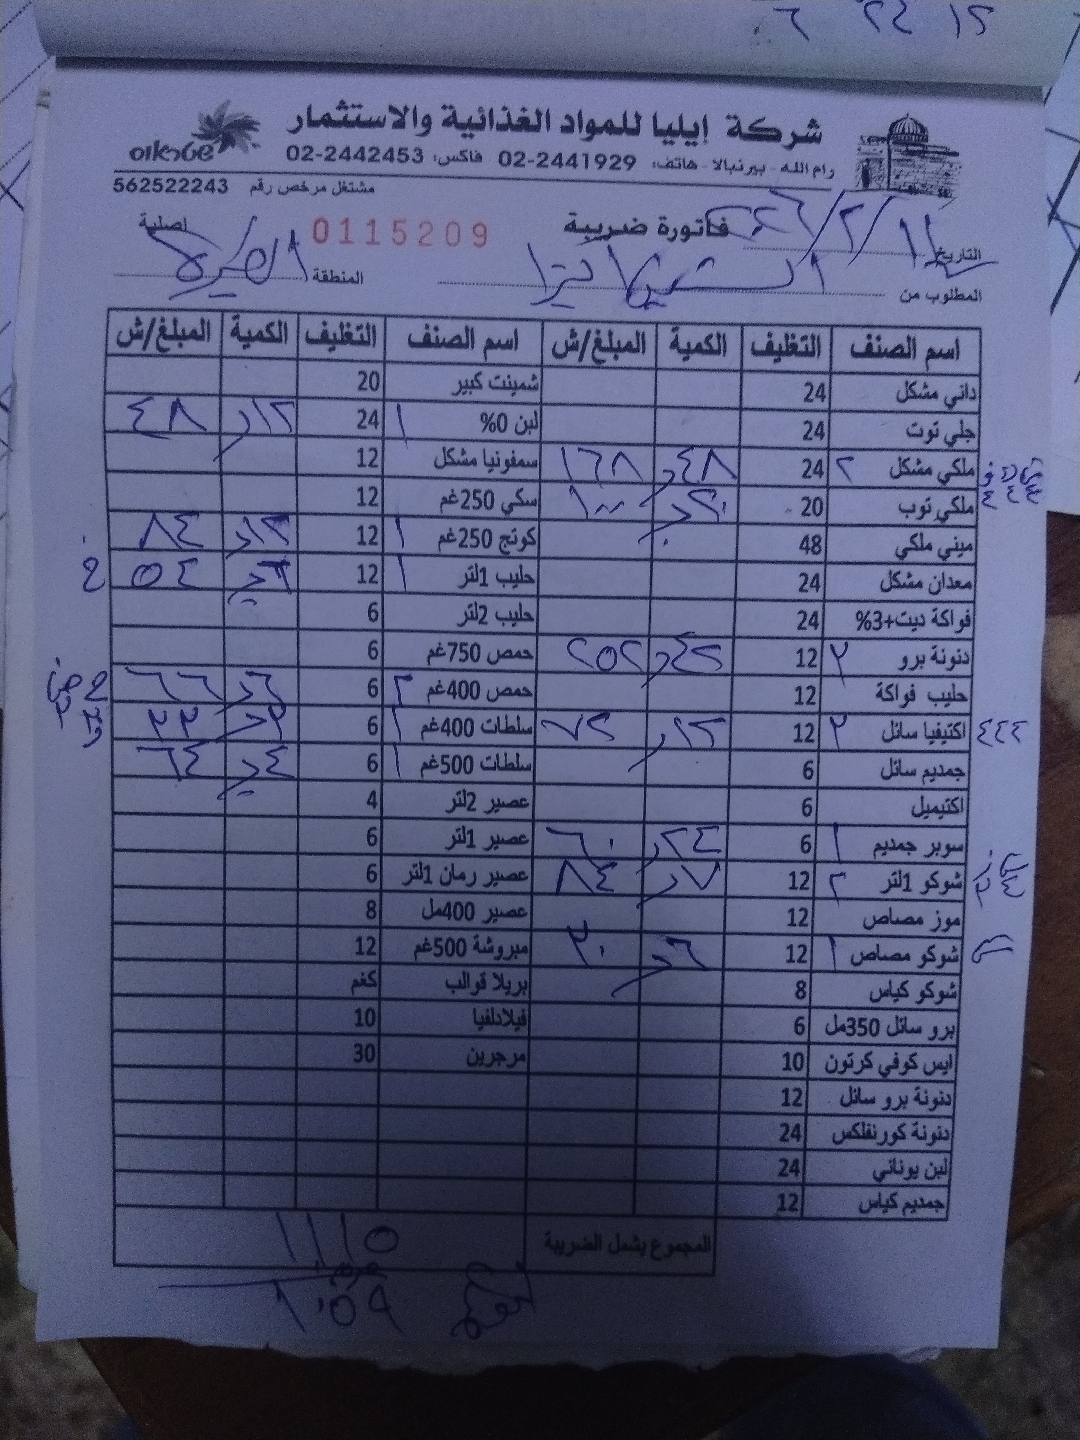 ٦ ٢٤ ١٢
شركة إيليا للمواد الغذائية والاستثمار
رام الله - بيرنبالا - هاتف: 02-2441929 فاكس: 02-2442453
مشتغل مرخص رقم 562522243
فاتورة ضريبة 0115209 اصلية
التاريخ
المطلوب من المنطقة
اسم الصنف التغليف الكمية المبلغ/ش اسم الصنف التغليف الكمية المبلغ/ش
داني مشكل 24 شمينت كبير 20
جلي توت 24 لبن 0% ١ 24 ١٢ ٤٨
ملكي مشكل ٢ 24 ٤٨ ١٦٨ سمفونيا مشكل 12
ملكي توب 20 ٢٠ ١٠٠ سكي 250غم 12
ميني ملكي 48 كوتج 250غم ١ 12 ١٢ ٨٤
معدان مشكل 24 حليب 1لتر ١ 12 ٥٤
فواكة ديت+3% 24 حليب 2لتر 6
دنونة برو ٢ 12 ٤٢ ٢٥٢ حمص 750غم 6
حليب فواكة 12 حمص 400غم ٢ 6 ٦ ٦٦
اكتيفيا سائل ٢ 12 ١٢ ٧٢ سلطات 400غم ١ 6 ٢ ٢٢
جمديم سائل 6 سلطات 500غم ١ 6 ٤ ٦٤
اكتيميل 6 عصير 2لتر 4
سوبر جمديم ١ 6 ٢٤ ٦٠ عصير 1لتر 6
شوكو 1لتر ٢ 12 ٧ ٨٤ عصير رمان 1لتر 6
موز مصاص 12 عصير 400مل 8
شوكو مصاص ١ 12 ٦ ٣٠ مبروشة 500غم 12
شوكو كياس 8 بريلا قوالب كغم
برو سائل 350مل 6 فيلادلفيا 10
ايس كوفي كرتون 10 مرجرين 30
دنونة برو سائل 12
دنونة كورنفلكس 24
لبن يوناني 24
جمديم كياس 12
المجموع يشمل الضريبة ١١١٥
١٠٥٩